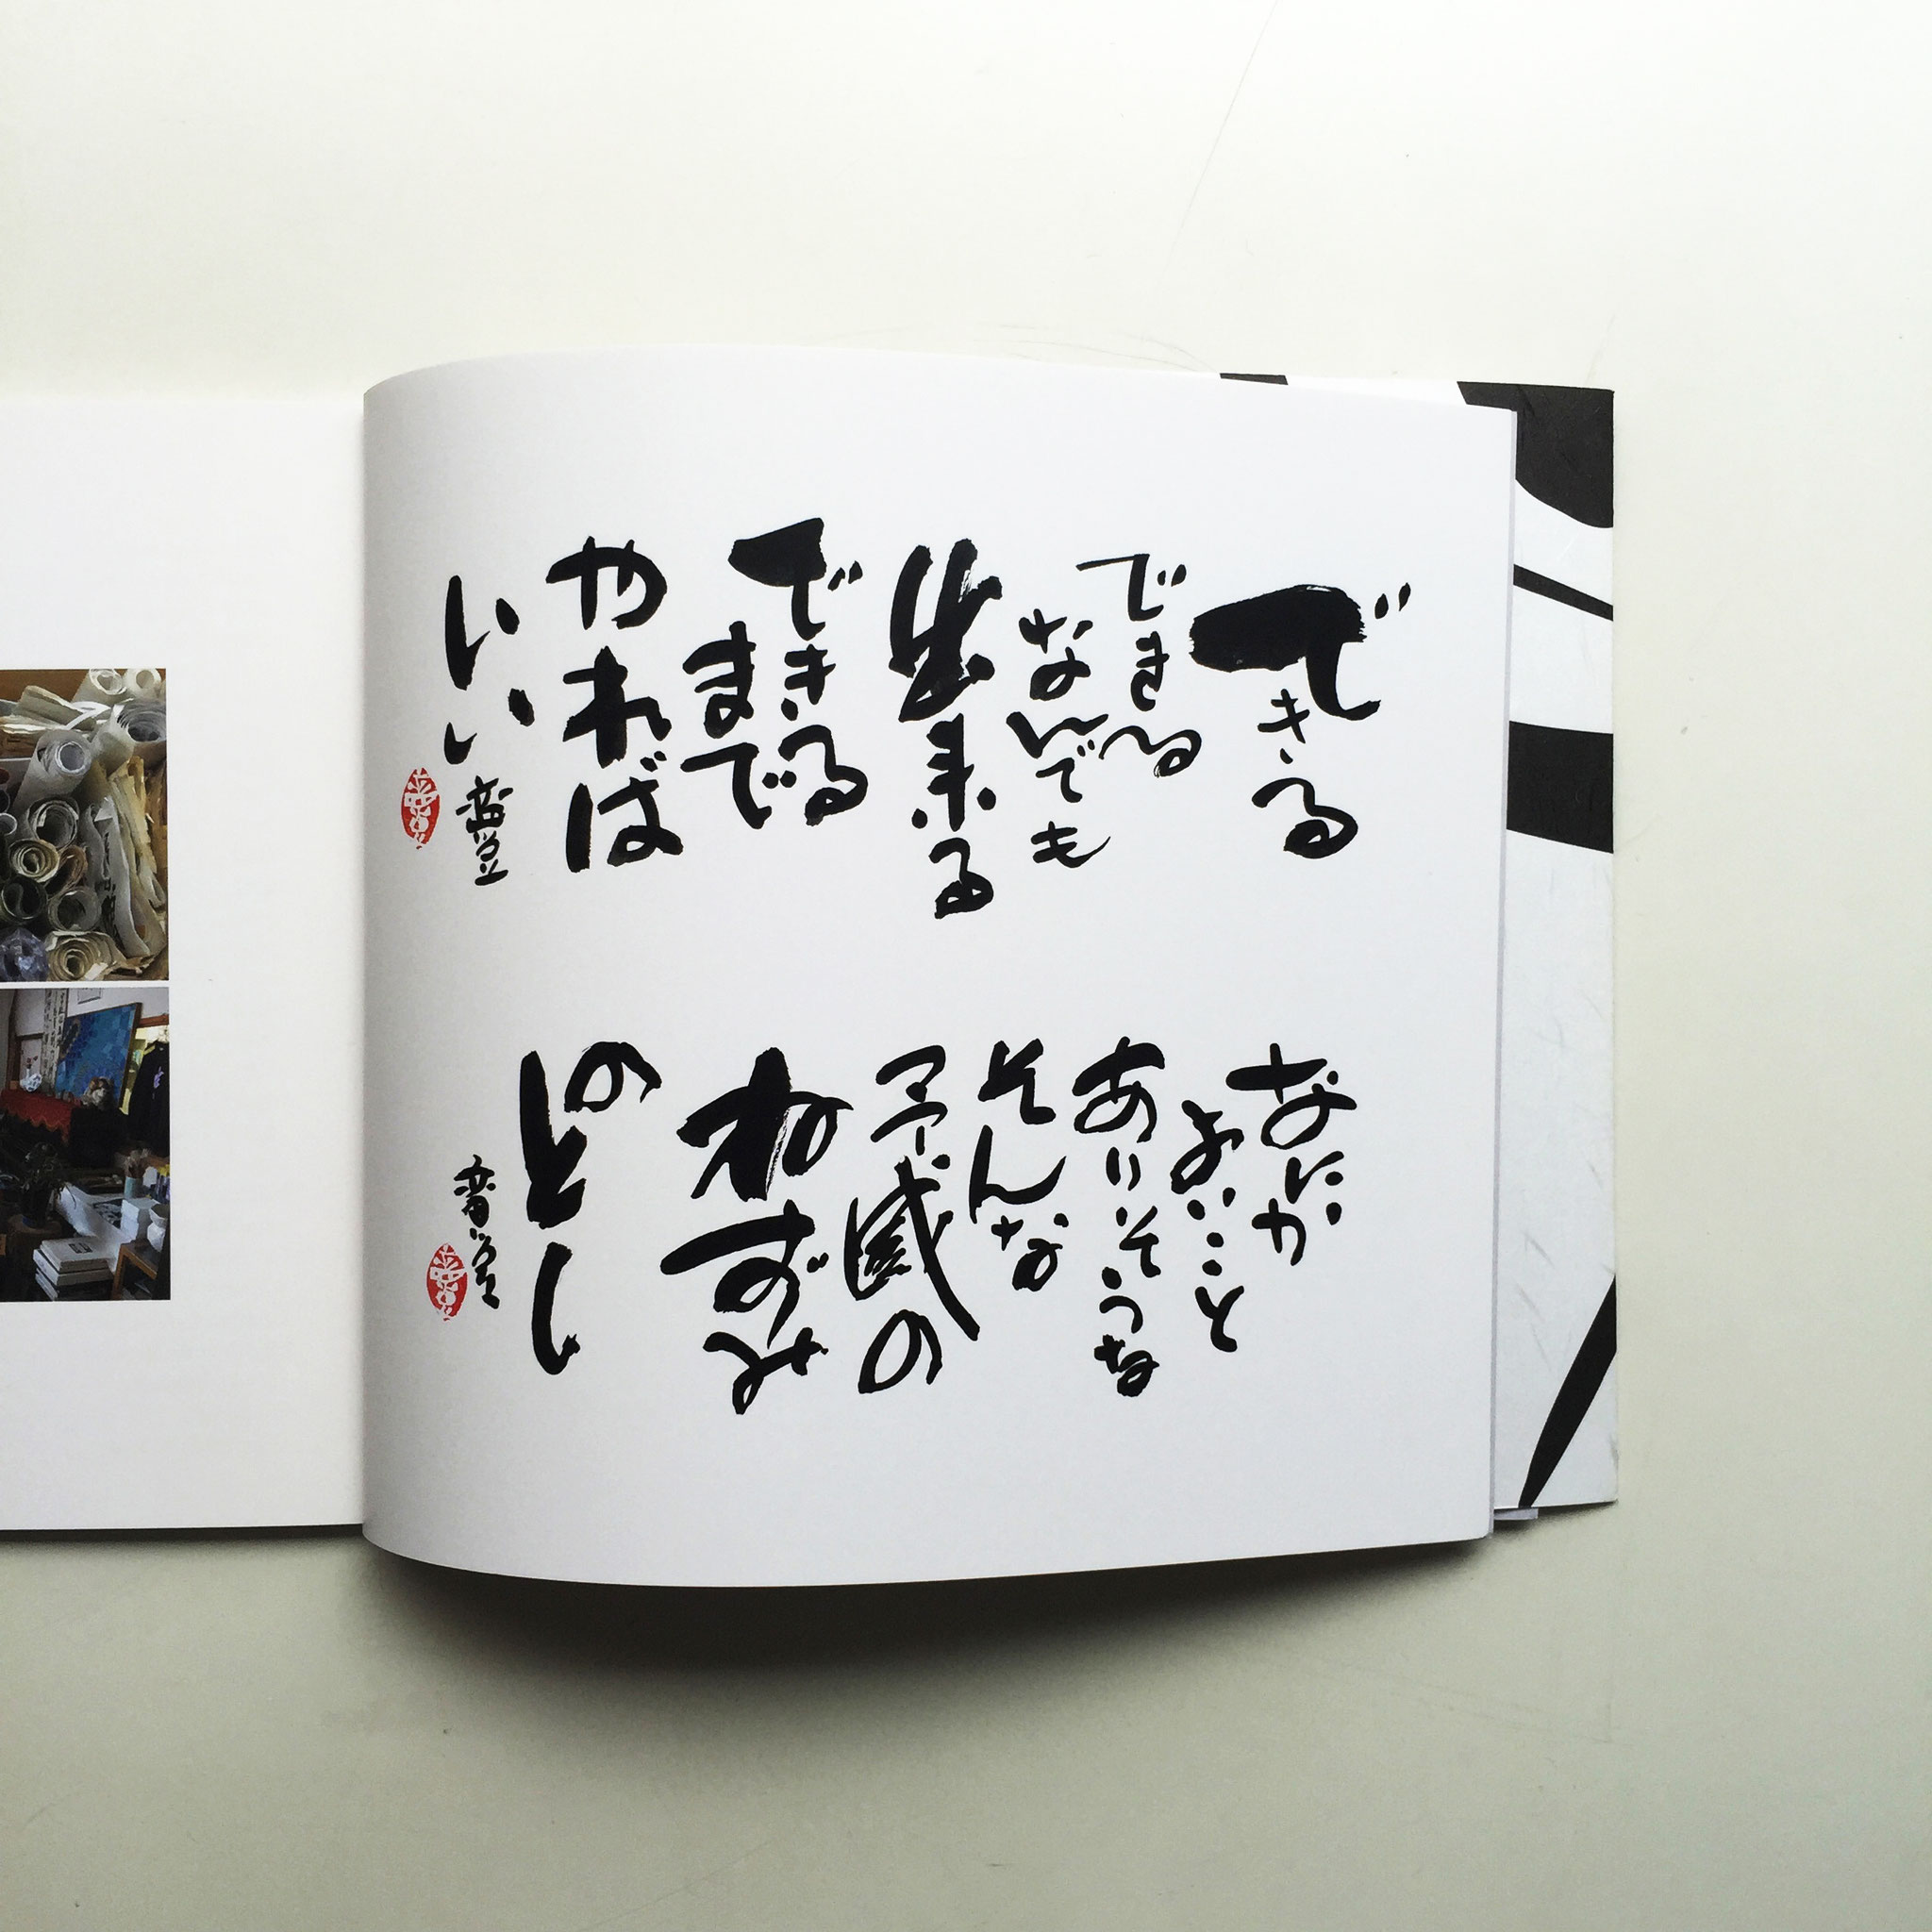 できる
できる
なんでも
出来る
できる
まで
やれば
いい
なにか
よいこと
ありそうな
そんな
予感の
ねずみ
のとし